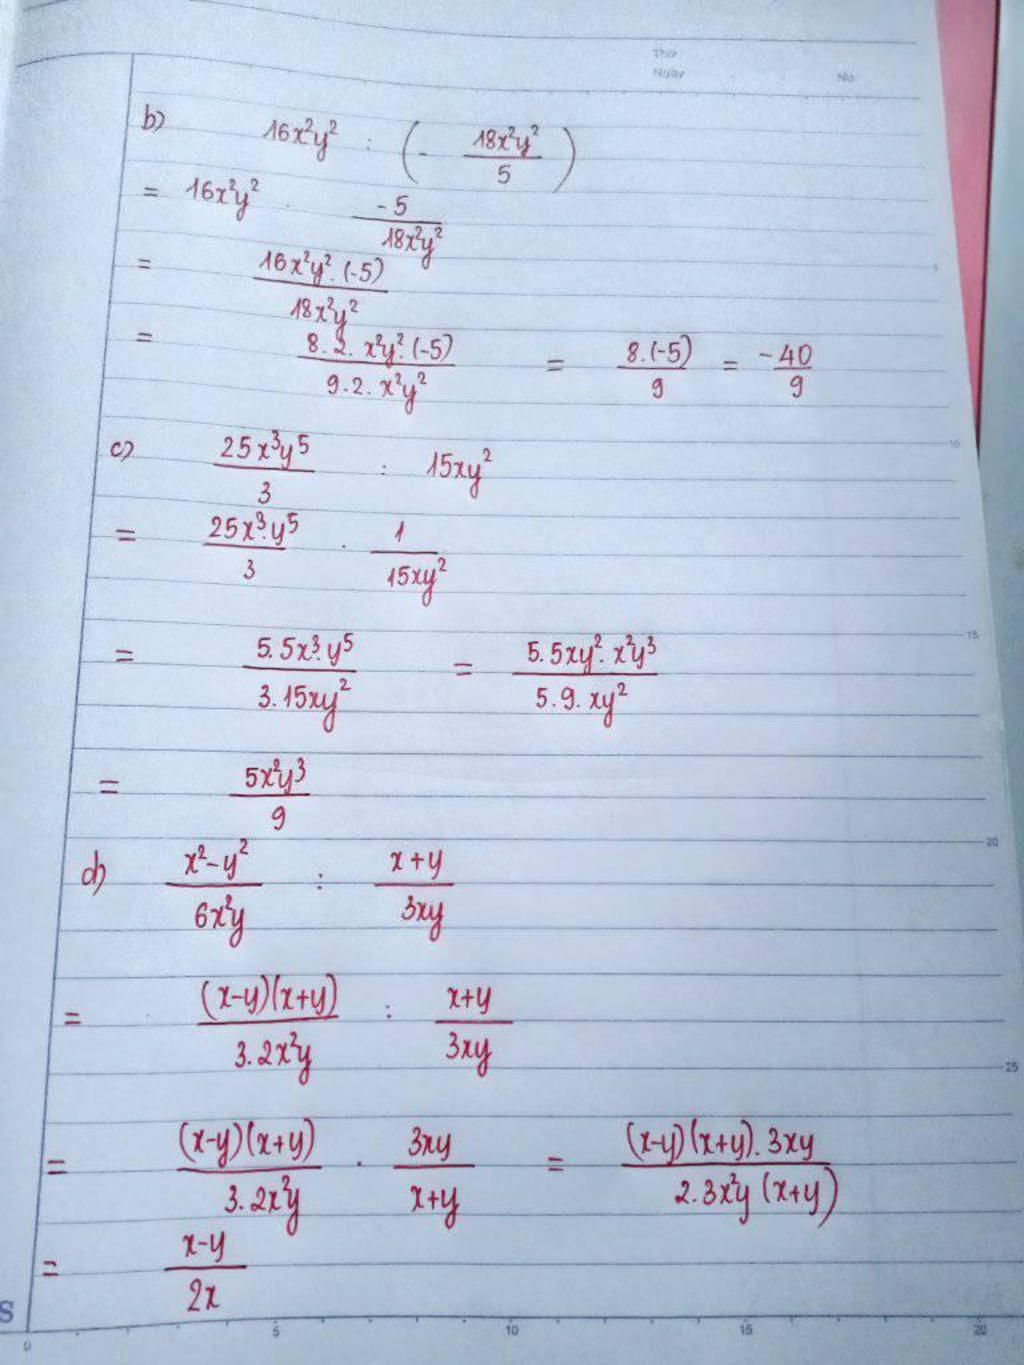 Thứ
Ngày No
b) 16x²y² : (- 18x²y²/5)
= 16x²y² . -5/18x²y²
= 16x²y².(-5)/18x²y²
= 8.2.x²y².(-5)/9.2.x²y² = 8.(-5)/9 = -40/9
c) 25x³y⁵/3 : 15xy²
= 25x³.y⁵/3 . 1/15xy²
= 5.5x³.y⁵/3.15xy² = 5.5xy².x²y³/5.9.xy²
= 5x²y³/9
d) x²-y²/6x²y : x+y/3xy
= (x-y)(x+y)/3.2x²y : x+y/3xy
= (x-y)(x+y)/3.2x²y . 3xy/x+y = (x-y)(x+y).3xy/2.3x²y(x+y)
= x-y/2x
5
10
15
20
25
S
0 5 10 15 20